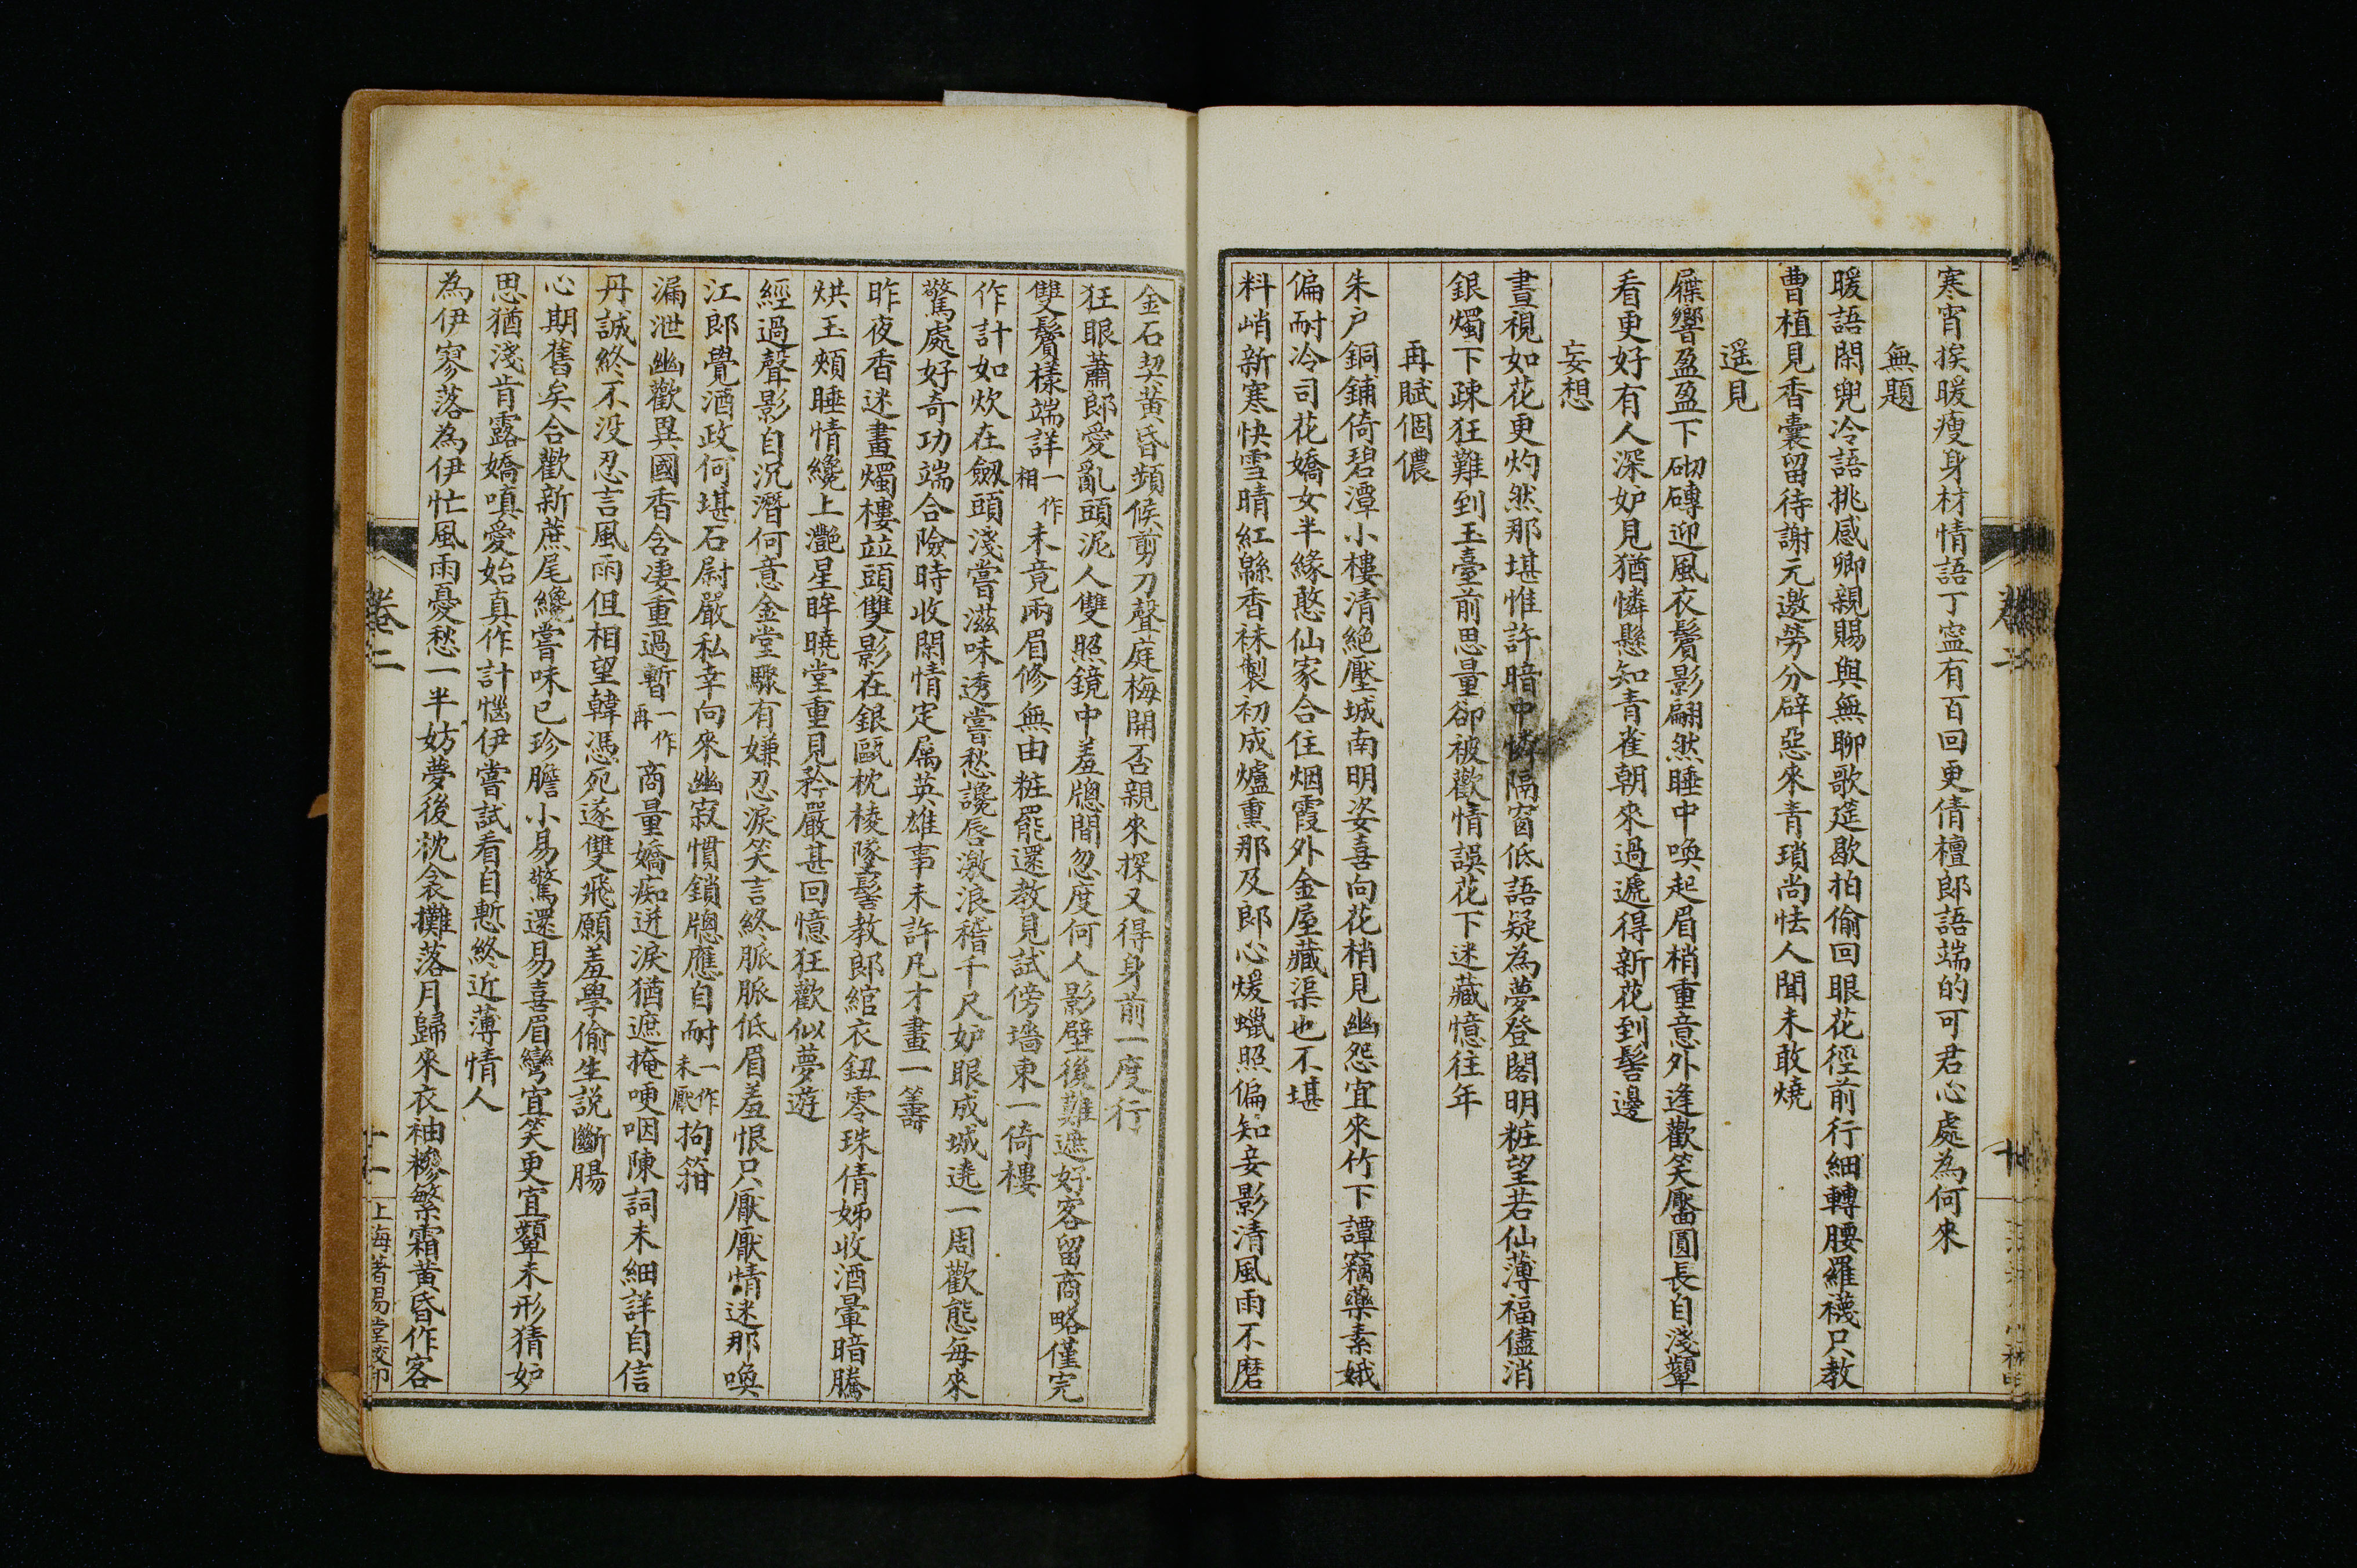 寒宵挨暖瘦身材情語丁寧有百回更倩檀郎語端的可君心處為何來
無題
暖語閑兜冷語挑感卿親賜與無聊歌筵歇拍偷回眼花徑前行細轉腰羅襪只教
曹植見香囊留待謝元邀勞分辟惡來青瑣尚怯人聞未敢燒
遥見
屧響盈盈下砌磚迎風衣鬢影翩然睡中喚起眉梢重意外逢歡笑靨圓長自淺顰
看更好有人深妒見猶憐懸知青雀朝來過遞得新花到髻邊
妄想
晝視如花更灼然那堪惟許暗中憐隔窗低語疑為夢登閣明粧望若仙薄福儘消
銀燭下疎狂難到玉臺前思量卻被歡情誤花下迷藏憶往年
再賦個儂
朱户銅鋪倚碧潭小樓清絶壓城南明姿喜向花梢見幽怨宜來竹下譚竊藥素娥
偏耐冷司花嬌女半緣憨仙家合住烟霞外金屋藏渠也不堪
料峭新寒快雪晴紅緜香袜製初成爐熏那及郎心煖蠟照偏知妾影清風雨不磨
金石契黃昏頻候剪刀聲庭梅開否親來探又得身前一度行
狂眼蕭郎愛亂頭泥人雙照鏡中羞牕間忽度何人影壁後難遮好客留商略僅完
雙鬢樣端詳一作相未竟兩眉修無由粧罷還教見試傍墻東一倚樓
作計如炊在劔頭淺嘗滋味透嘗愁讒唇激浪稽千尺妒眼成城遶一周歡態每來
驚處好奇功端合險時收閑情定属英雄事未許凡才畫一籌
昨夜香迷畫燭樓竝頭雙影在銀甌枕棱墜髻教郎綰衣鈕零珠倩姊收酒暈暗騰
烘玉頰睡情纔上灔星眸曉堂重見矜嚴甚回憶狂歡似夢遊
經過聲影自沉潛何意金堂驟有嫌忍淚笑言終脈脈低眉羞恨只厭厭情迷那喚
江郎覺酒政何堪石尉嚴私幸向來幽寂慣鎖牕應自耐一作未厭拘箝
漏泄幽歡異國香含凄重過暫一作再商量嬌痴迸淚猶遮掩哽咽陳詞未細詳自信
丹誠終不没忍言風雨但相望韓馮死遂雙飛願羞學偷生説斷腸
心期舊矣合歡新蔗尾纔嘗味已珍膽小易驚還易喜眉彎宜笑更宜顰未形猜妒
思猶淺肯露嬌嗔愛始真作計惱伊嘗試看自慙終近薄情人
為伊寥落為伊忙風雨憂愁一半妨夢後枕衾攤落月歸來衣袖糝繁霜黃昏作客
卷二
十一
上海著易堂校印